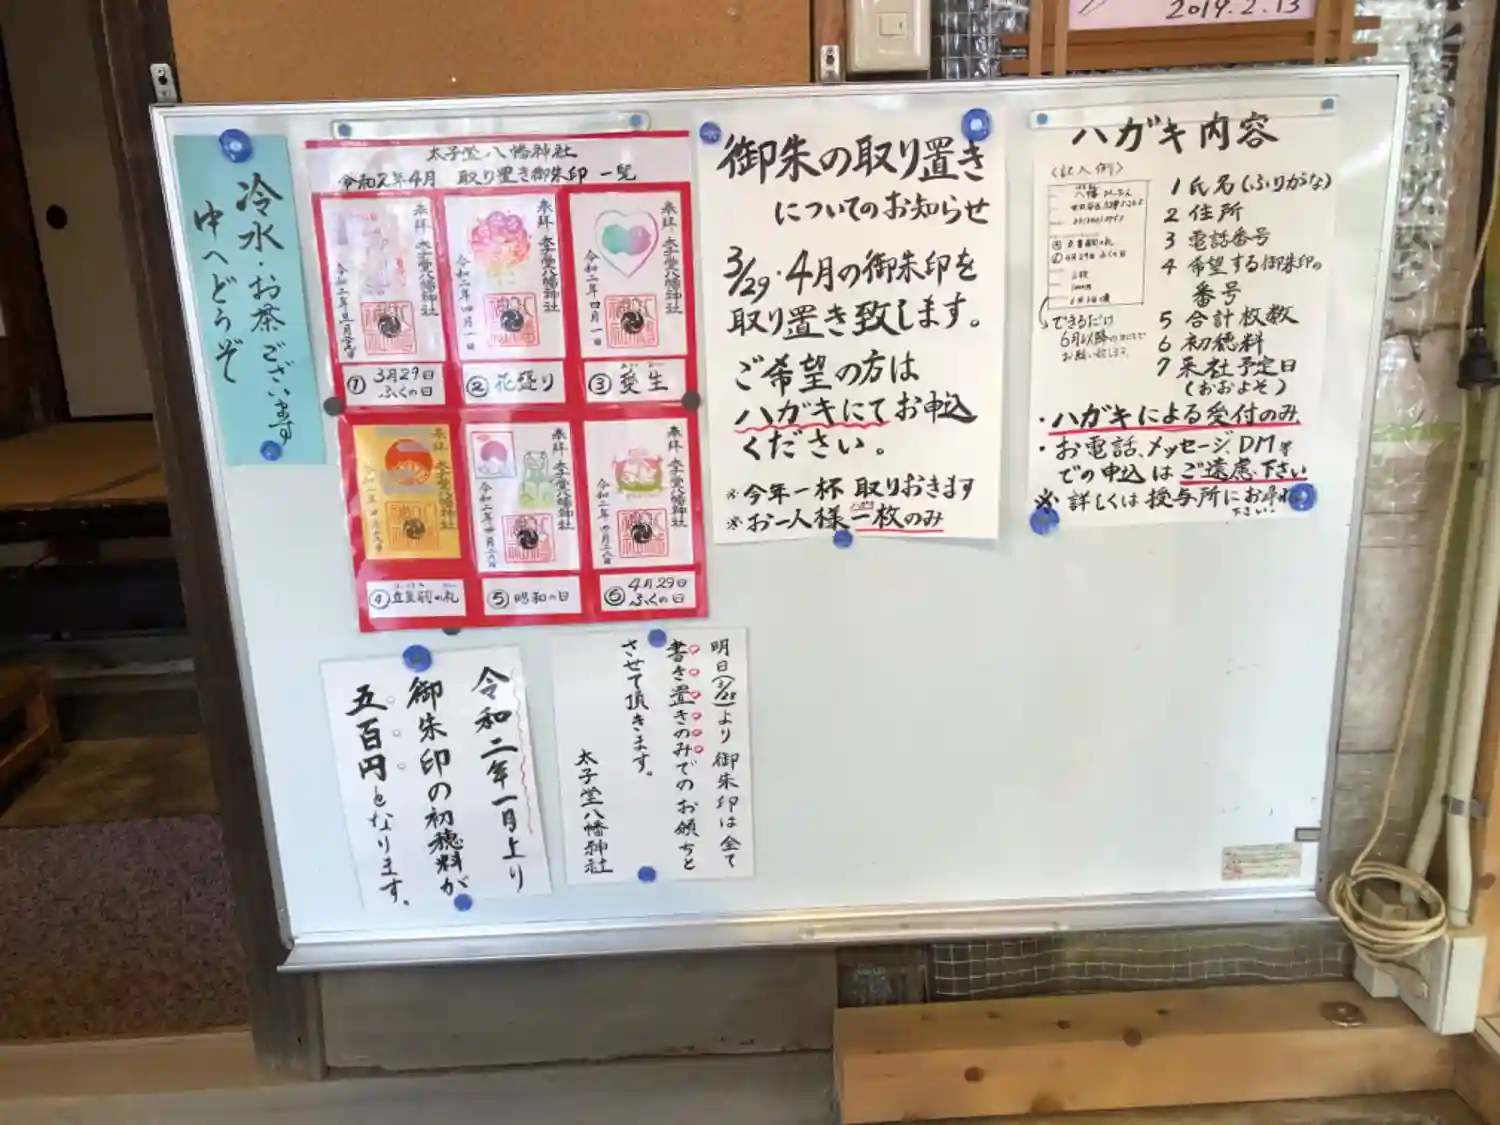 2019.2.13
冷水・お茶ございます
中へどうぞ
太子堂八幡神社
令和2年4月 取り置き御朱印 一覧
奉拝 太子堂八幡神社
奉拝 太子堂八幡神社
令和二年四月一日
奉拝 太子堂八幡神社
令和二年四月一日
① 3月29日
ふくの日
② 花盛り
③
奉拝 太子堂八幡神社
奉拝 太子堂八幡神社
奉拝 太子堂八幡神社
④
⑤ 昭和の日
⑥ 4月29日
ふくの日
御朱の取り置き
についてのお知らせ
3/29・4月の御朱印を
取り置き致します。
ご希望の方は
ハガキにてお申込
ください。
※今年一杯 取りおきます
※お一人様一枚のみ
ハガキ内容
〈記入例〉
できるだけ
6月以降の
お願い致します。
1 氏名(ふりがな)
2 住所
3 電話番号
4 希望する御朱印の
番号
5 合計枚数
6 初穂料
7 来社予定日
(おおよそ)
・ハガキによる受付のみ
・お電話、メッセージ、DM等
での申込はご遠慮下さい
※詳しくは授与所にお尋ね
下さい。
令和二年一月より
御朱印の初穂料が
五百円となります。
明日(3/28)より御朱印は全て
書き置きのみでのお頒ちと
させて頂きます。
太子堂八幡神社